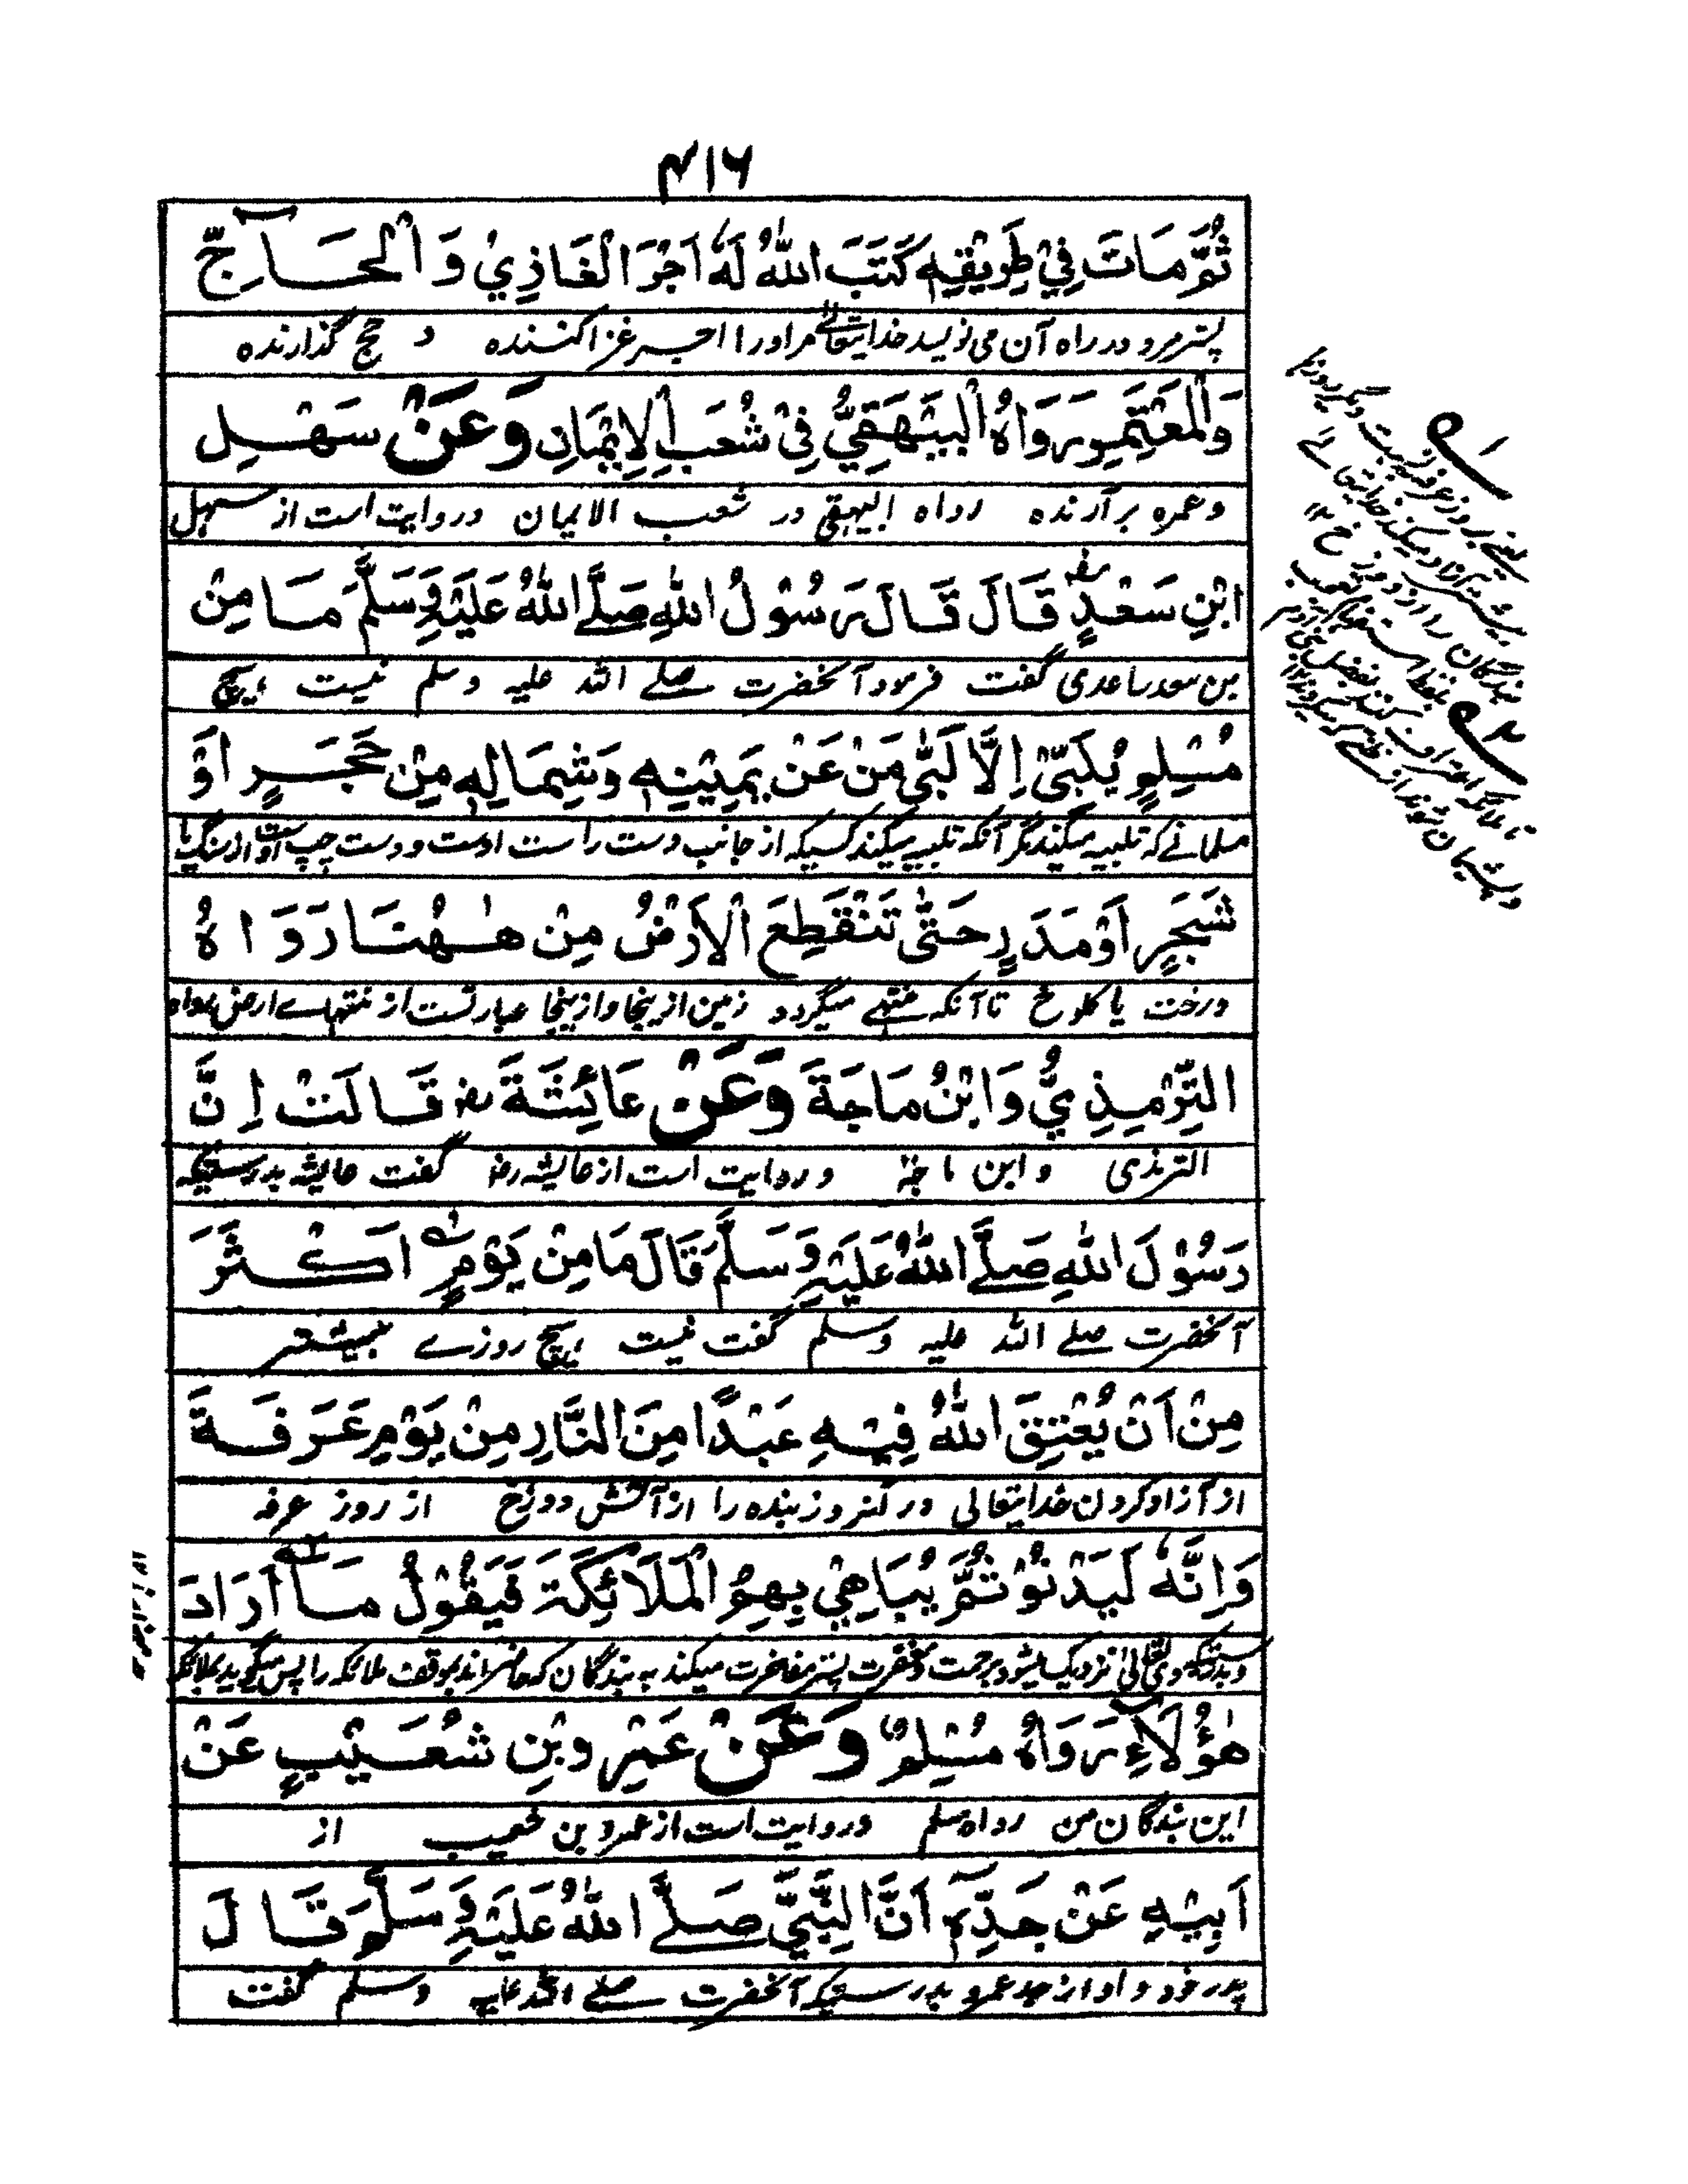 ۴۱۶
ثُمَّ مَاتَ فِيْ طَرِيْقِهٖ كَتَبَ اللّٰهُ لَهٗ اَجْرَ الْغَازِيْ وَ الْحَـاجِّ
پستر مرد در راه آن می نویسد خدایتعالے مر او را اجر غزا کننده و حج گذارنده
وَالْمُعْتَمِرِ رَوَاهُ الْبَيْهَقِيُّ فِيْ شُعَبِ الْاِيْمَانِ وَعَنْ سَهْـلِ
و عمره بر آرنده رواه البیهقی در شعب الایمان و روایت است از سهل
ابْنِ سَعْدٍ رض قَالَ قَالَ رَسُوْلُ اللّٰهِ صَلَّے اللّٰهُ عَلَيْهِ وَسَلَّمَ مَـا مِنْ
بن سعد ساعدی گفت فرمود آنحضرت صلے الله علیه وسلم نیست هیچ
مُسْلِمٍ يُلَبِّيْ اِلَّا لَبّٰى مَنْ عَنْ يَمِيْنِهٖ وَشِمَالِهٖ مِنْ حَجَـرٍ اَوْ
مسلمانے که تلبیه میکند مگر آنکه تلبیه میکند کسیکه از جانب دست راست اوست و دست چپ اوست از سنگ یا
شَجَرٍ اَوْ مَدَرٍ حَتّٰى تَنْقَطِعَ الْاَرْضُ مِنْ هٰـهُنَـا رَوَاهُ
درخت یا کلوخ تا آنکه منتهے میگردد زمین از ینجا و از ینجا عبارتست از منتهاے ارض رواه
التِّرْمِذِيُّ وَابْنُ مَاجَةَ وَعَنْ عَائِشَةَ رض قَـالَتْ اِنَّ
الترمذی و ابن ماجة و روایت است از عایشه رض گفت عایشه بدرستیکه
رَسُوْلَ اللّٰهِ صَلَّے اللّٰهُ عَلَيْهِ وَسَلَّمَ قَالَ مَا مِنْ يَوْمٍ اَكْـثَرَ
آنحضرت صلے الله علیه وسلم گفت نیست هیچ روزے بیشتر
مِنْ اَنْ يُعْتِقَ اللّٰهُ فِيْـهِ عَبْـدًا مِنَ النَّارِ مِنْ يَوْمِ عَرَفَـةَ
از آزاد کردن خدایتعالی در آنروز بنده را از آتش دوزخ از روز عرفه
وَاِنَّهٗ لَيَدْنُوْ ثُمَّ يُبَاهِيْ بِهِمُ الْمَلَآئِكَةَ فَيَقُوْلُ مَـآ اَرَادَ
و بدرستیکه وی تعالیٰ نزدیک میشود برحمت و مغفرت پستر مفاخرت میکند به بندگان که حاضر اند بموقف ملائکه را پس میگوید بملائکه
هٰؤُلَآءِ رَوَاهُ مُسْلِمٌ وَعَنْ عَمْرِو بْنِ شُعَـيْبٍ عَنْ
این بندگان من رواه مسلم و روایت است از عمرو بن شعیب از
اَبِيْـهِ عَنْ جَـدِّهٖ اَنَّ النَّبِيَّ صَـلَّے اللّٰهُ عَلَيْهِ وَسَلَّمَ قَـالَ
پدر خود و او از جد عمرو بدرستیکه آنحضرت صلے الله علیه وسلم گفت
یعنے بروز عرفه
بندگان را از دوزخ ۱۲